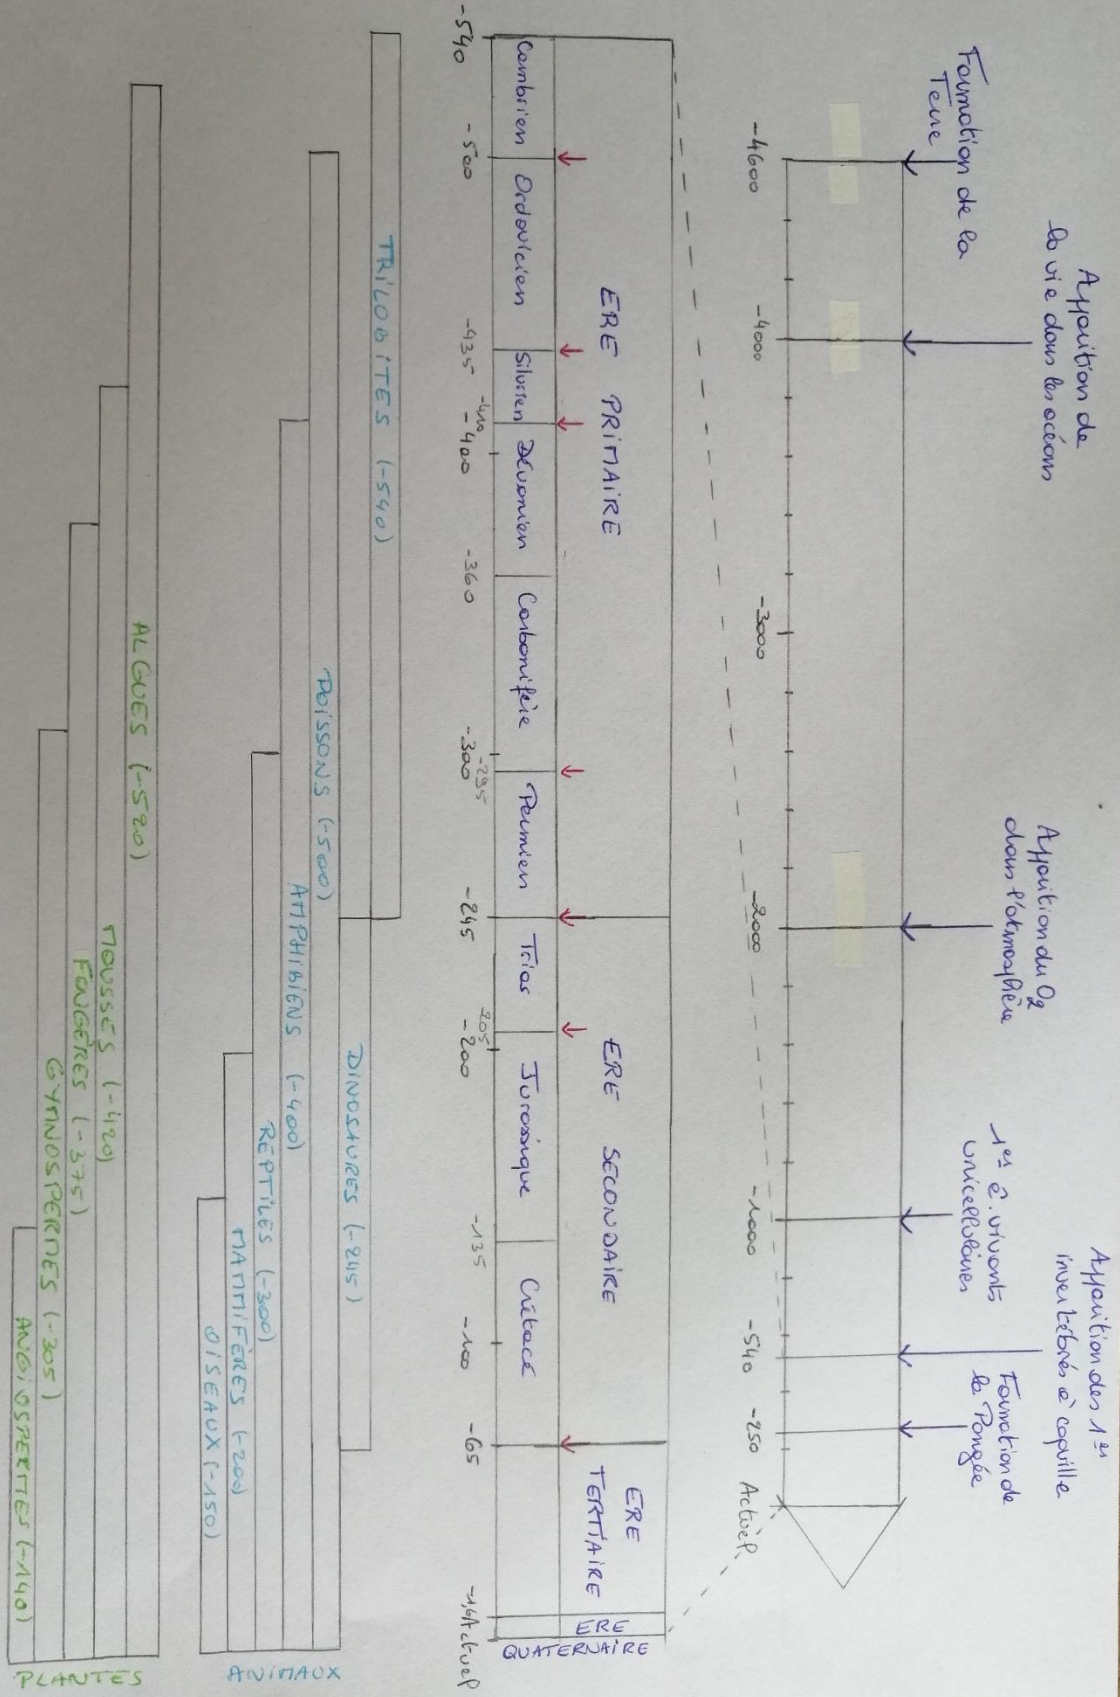 Formation de la
Terre
Apparition de
la vie dans les océans
Apparition du O2
dans l'atmosphère
1ers ê. vivants
unicellulaires
Apparition des 1ers
invertébrés à coquille
Formation de
la Pangée
-4600
-4000
-3000
-2000
-1000
-540
-250
Actuel
ERE PRIMAIRE
ERE SECONDAIRE
ERE
TERTIAIRE
ERE
QUATERNAIRE
Cambrien
Ordovicien
Silurien
Dévonien
Carbonifère
Permien
Trias
Jurassique
Crétacé
-540
-500
-435
-410
-400
-360
-300
-295
-245
205
-200
-135
-100
-65
-1,6
Actuel
TRILOBITES (-540)
DINOSAURES (-245)
POISSONS (-500)
AMPHIBIENS (-400)
REPTILES (-300)
MAMMIFÈRES (-200)
OISEAUX (-150)
ANIMAUX
ALGUES (-520)
MOUSSES (-420)
FOUGÈRES (-375)
GYMNOSPERMES (-305)
ANGIOSPERMES (-140)
PLANTES